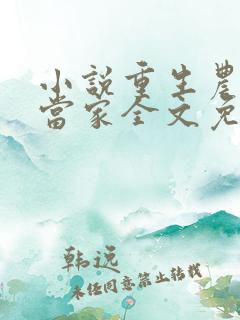 小说重生農
當家全文免
韩远
未经同意禁止转载